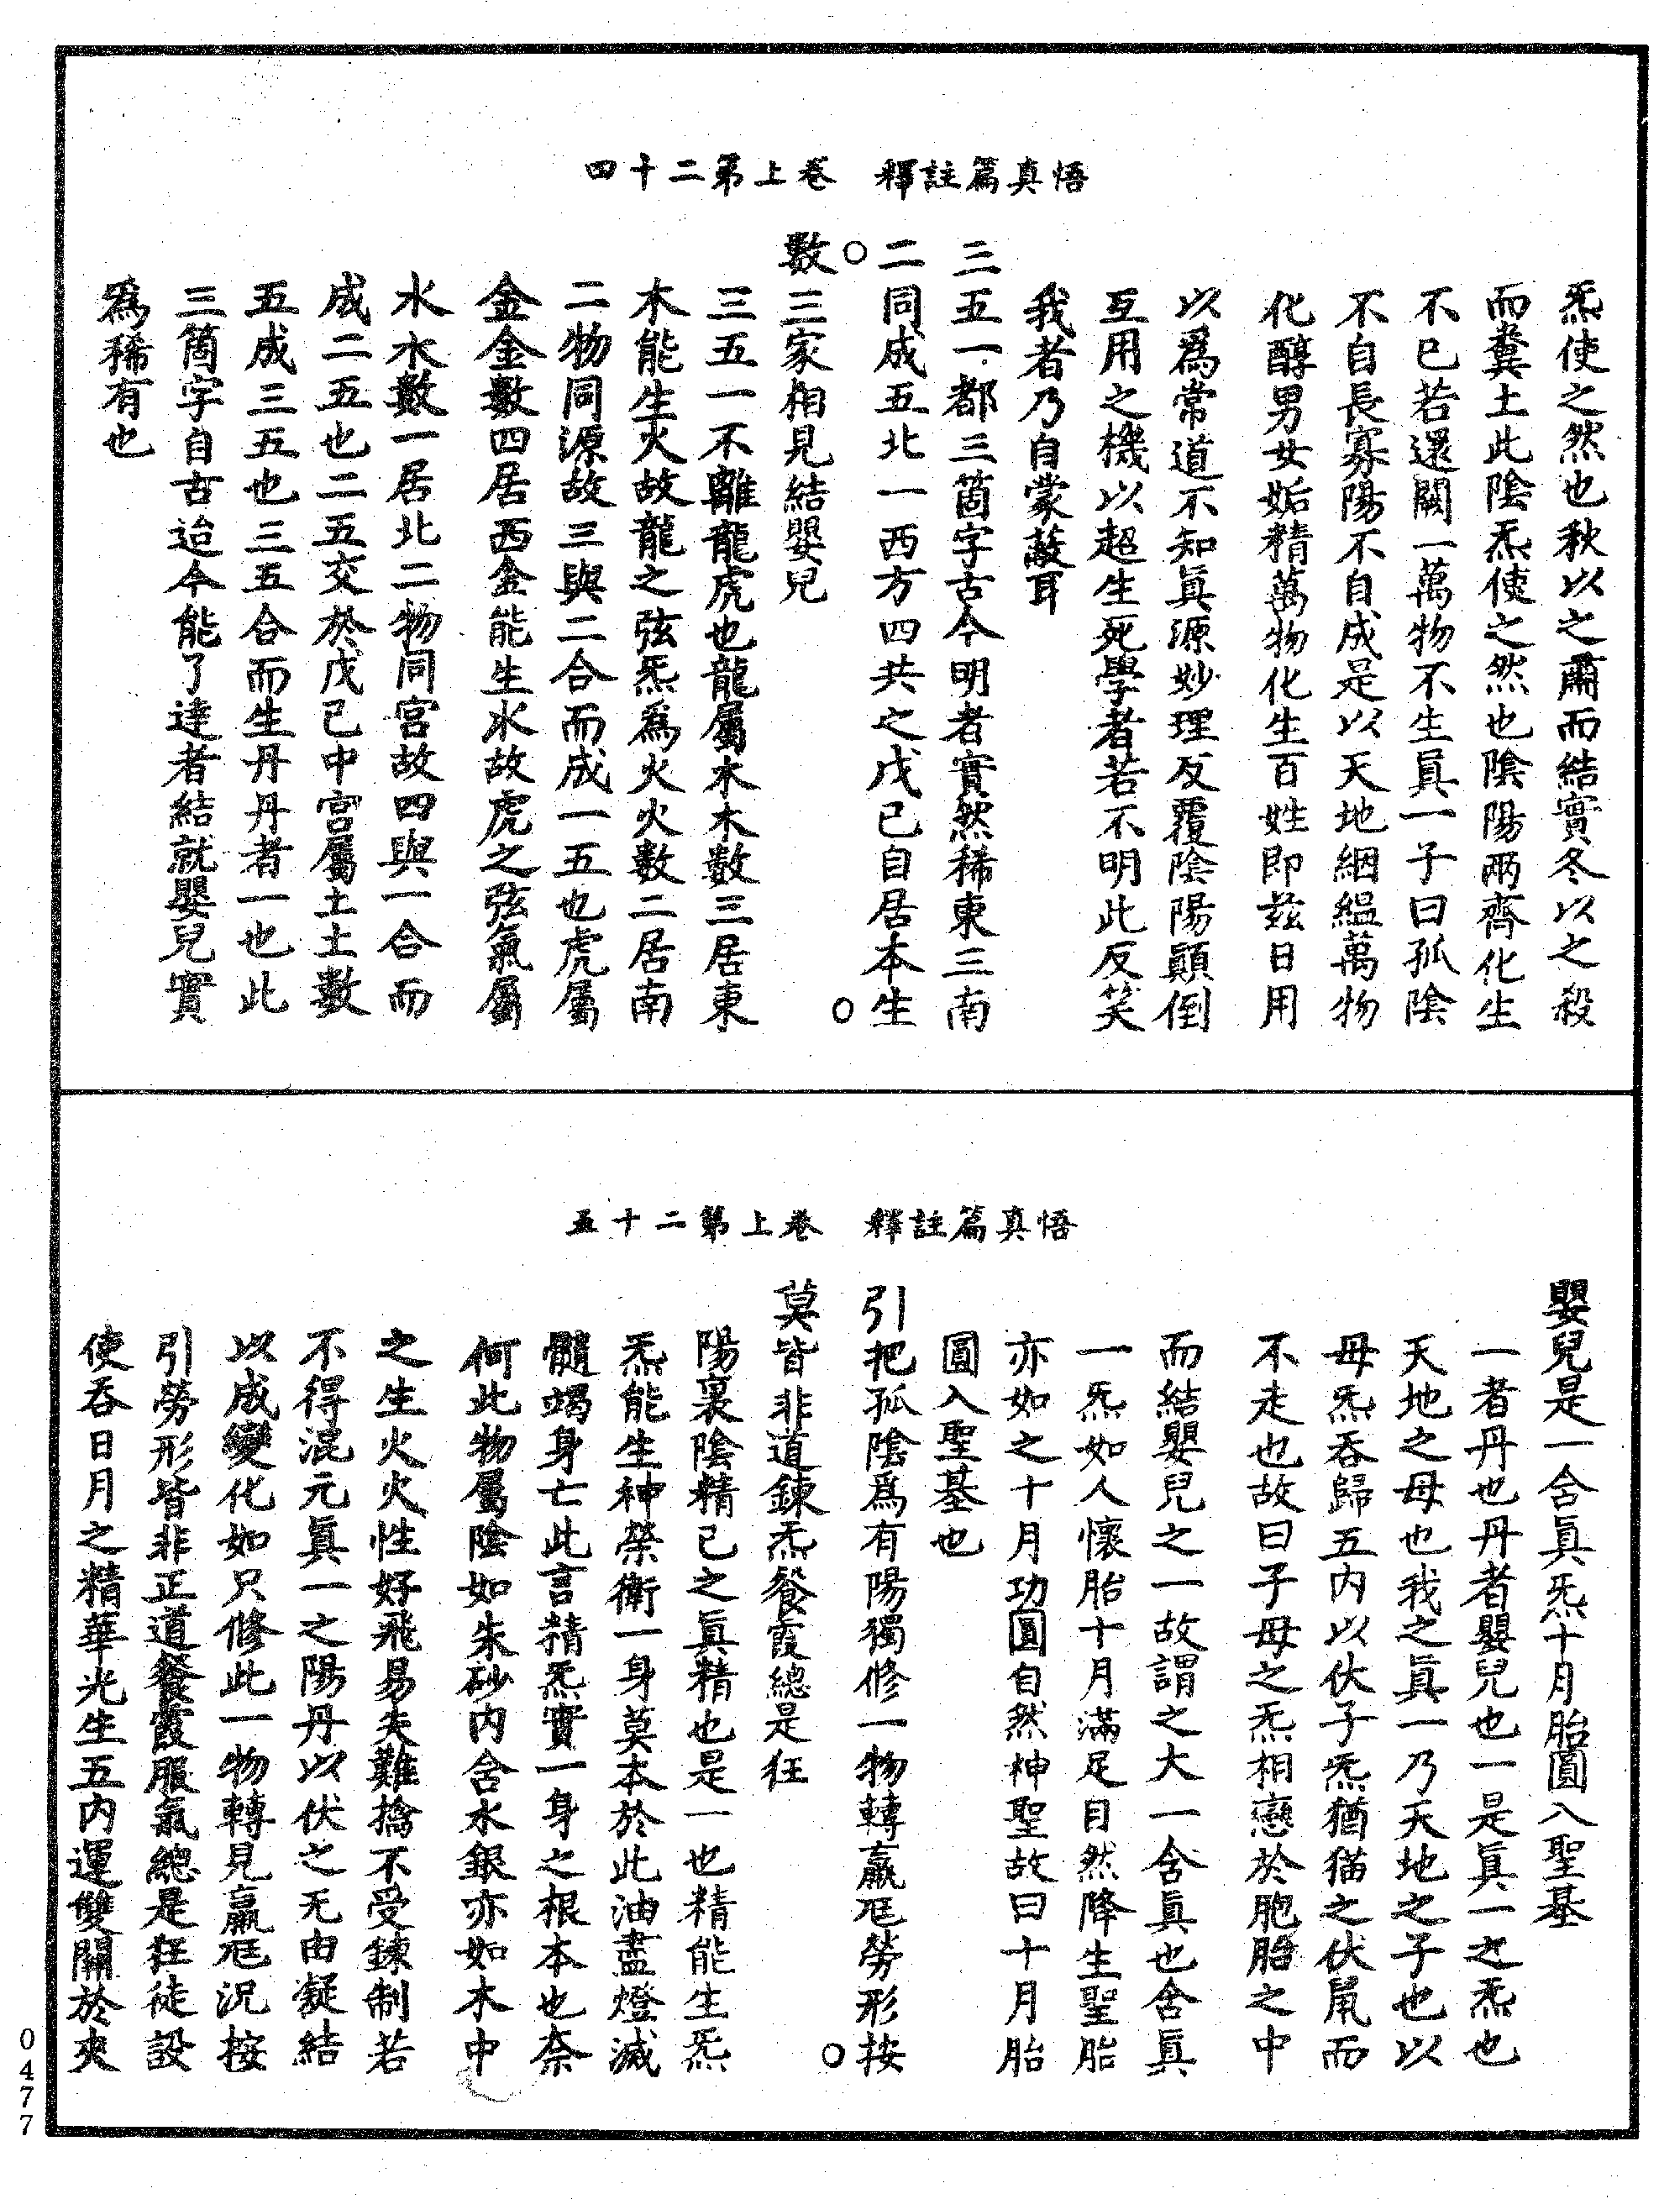 悟真篇註釋　卷上第二十四
炁使之然也秋以之肅而結實冬以之殺
而糞土此陰炁使之然也陰陽兩齊化生
不已若還闕一萬物不生眞一子曰孤陰
不自長寡陽不自成是以天地絪縕萬物
化醇男女姤精萬物化生百姓即兹日用
以爲常道不知眞源妙理反覆陰陽顚倒
互用之機以超生死學者若不明此反笑
我者乃自蒙蔽耳
三五一都三箇字古今明者實然稀東三南
二同成五北一西方四共之戊己自居本生
數○三家相見結嬰兒○
三五一不離龍虎也龍屬木木數三居東
木能生火故龍之弦炁爲火火數二居南
二物同源故三與二合而成一五也虎屬
金金數四居西金能生水故虎之弦氣屬
水水數一居北二物同宮故四與一合而
成二五也二五交於戊己中宮屬土土數
五成三五也三五合而生丹丹者一也此
三箇字自古迨今能了達者結就嬰兒實
爲稀有也
悟真篇註釋　卷上第二十五
嬰兒是一含眞炁十月胎圓入聖基
一者丹也丹者嬰兒也一是眞一之炁也
天地之母也我之眞一乃天地之子也以
母炁吞歸五内以伏子炁猶猫之伏鼠而
不走也故曰子母之炁相戀於胞胎之中
而結嬰兒之一故謂之大一含眞也含眞
一炁如人懷胎十月滿足自然降生聖胎
亦如之十月功圓自然神聖故曰十月胎
圓入聖基也
引把孤陰爲有陽獨修一物轉羸尫勞形按
莫皆非道鍊炁餐霞總是狂○
陽裏陰精己之眞精也是一也精能生炁
炁能生神榮衛一身莫本於此油盡燈滅
髓竭身亡此言精炁實一身之根本也奈
何此物屬陰如朱砂内含水銀亦如木中
之生火火性好飛易失難擒不受鍊制若
不得混元眞一之陽丹以伏之无由凝結
以成變化如只修此一物轉見羸尫況按
引勞形皆非正道餐霞服氣總是狂徒設
使吞日月之精華光生五内運雙關於夾
0477